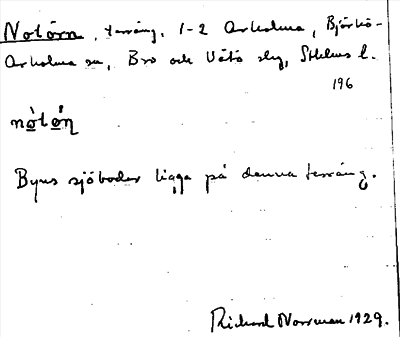 Notörn, terräng, 1-2 Arholma, Björkö-
Arholma sn, Bro och Vätö slg, Sthlms l.
196
nòtö́ņ
Byns sjöbodar ligga på denna terräng.
Richard Norrman 1929.